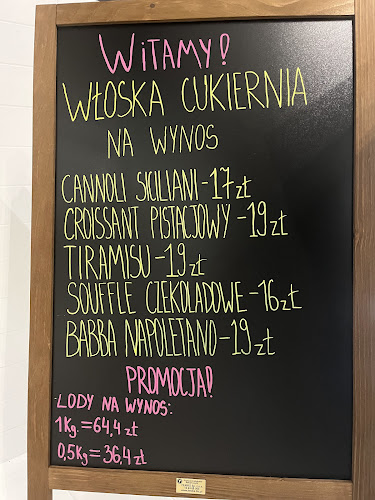 WiTAMY!
WŁOSKA CUKIERNIA
NA WYNOS
CANNOLI SICILIANI-17zł
CROISSANT PISTACJOWY -19zł
TIRAMISU-19zł
SOUFFLE CZEKOLADOWE-16zł
BABBA NAPOLETANO-19zł
PROMOCJA!
LODY NA WYNOS:
1Kg.=64,4 zł
0,5Kg=36,4 zł